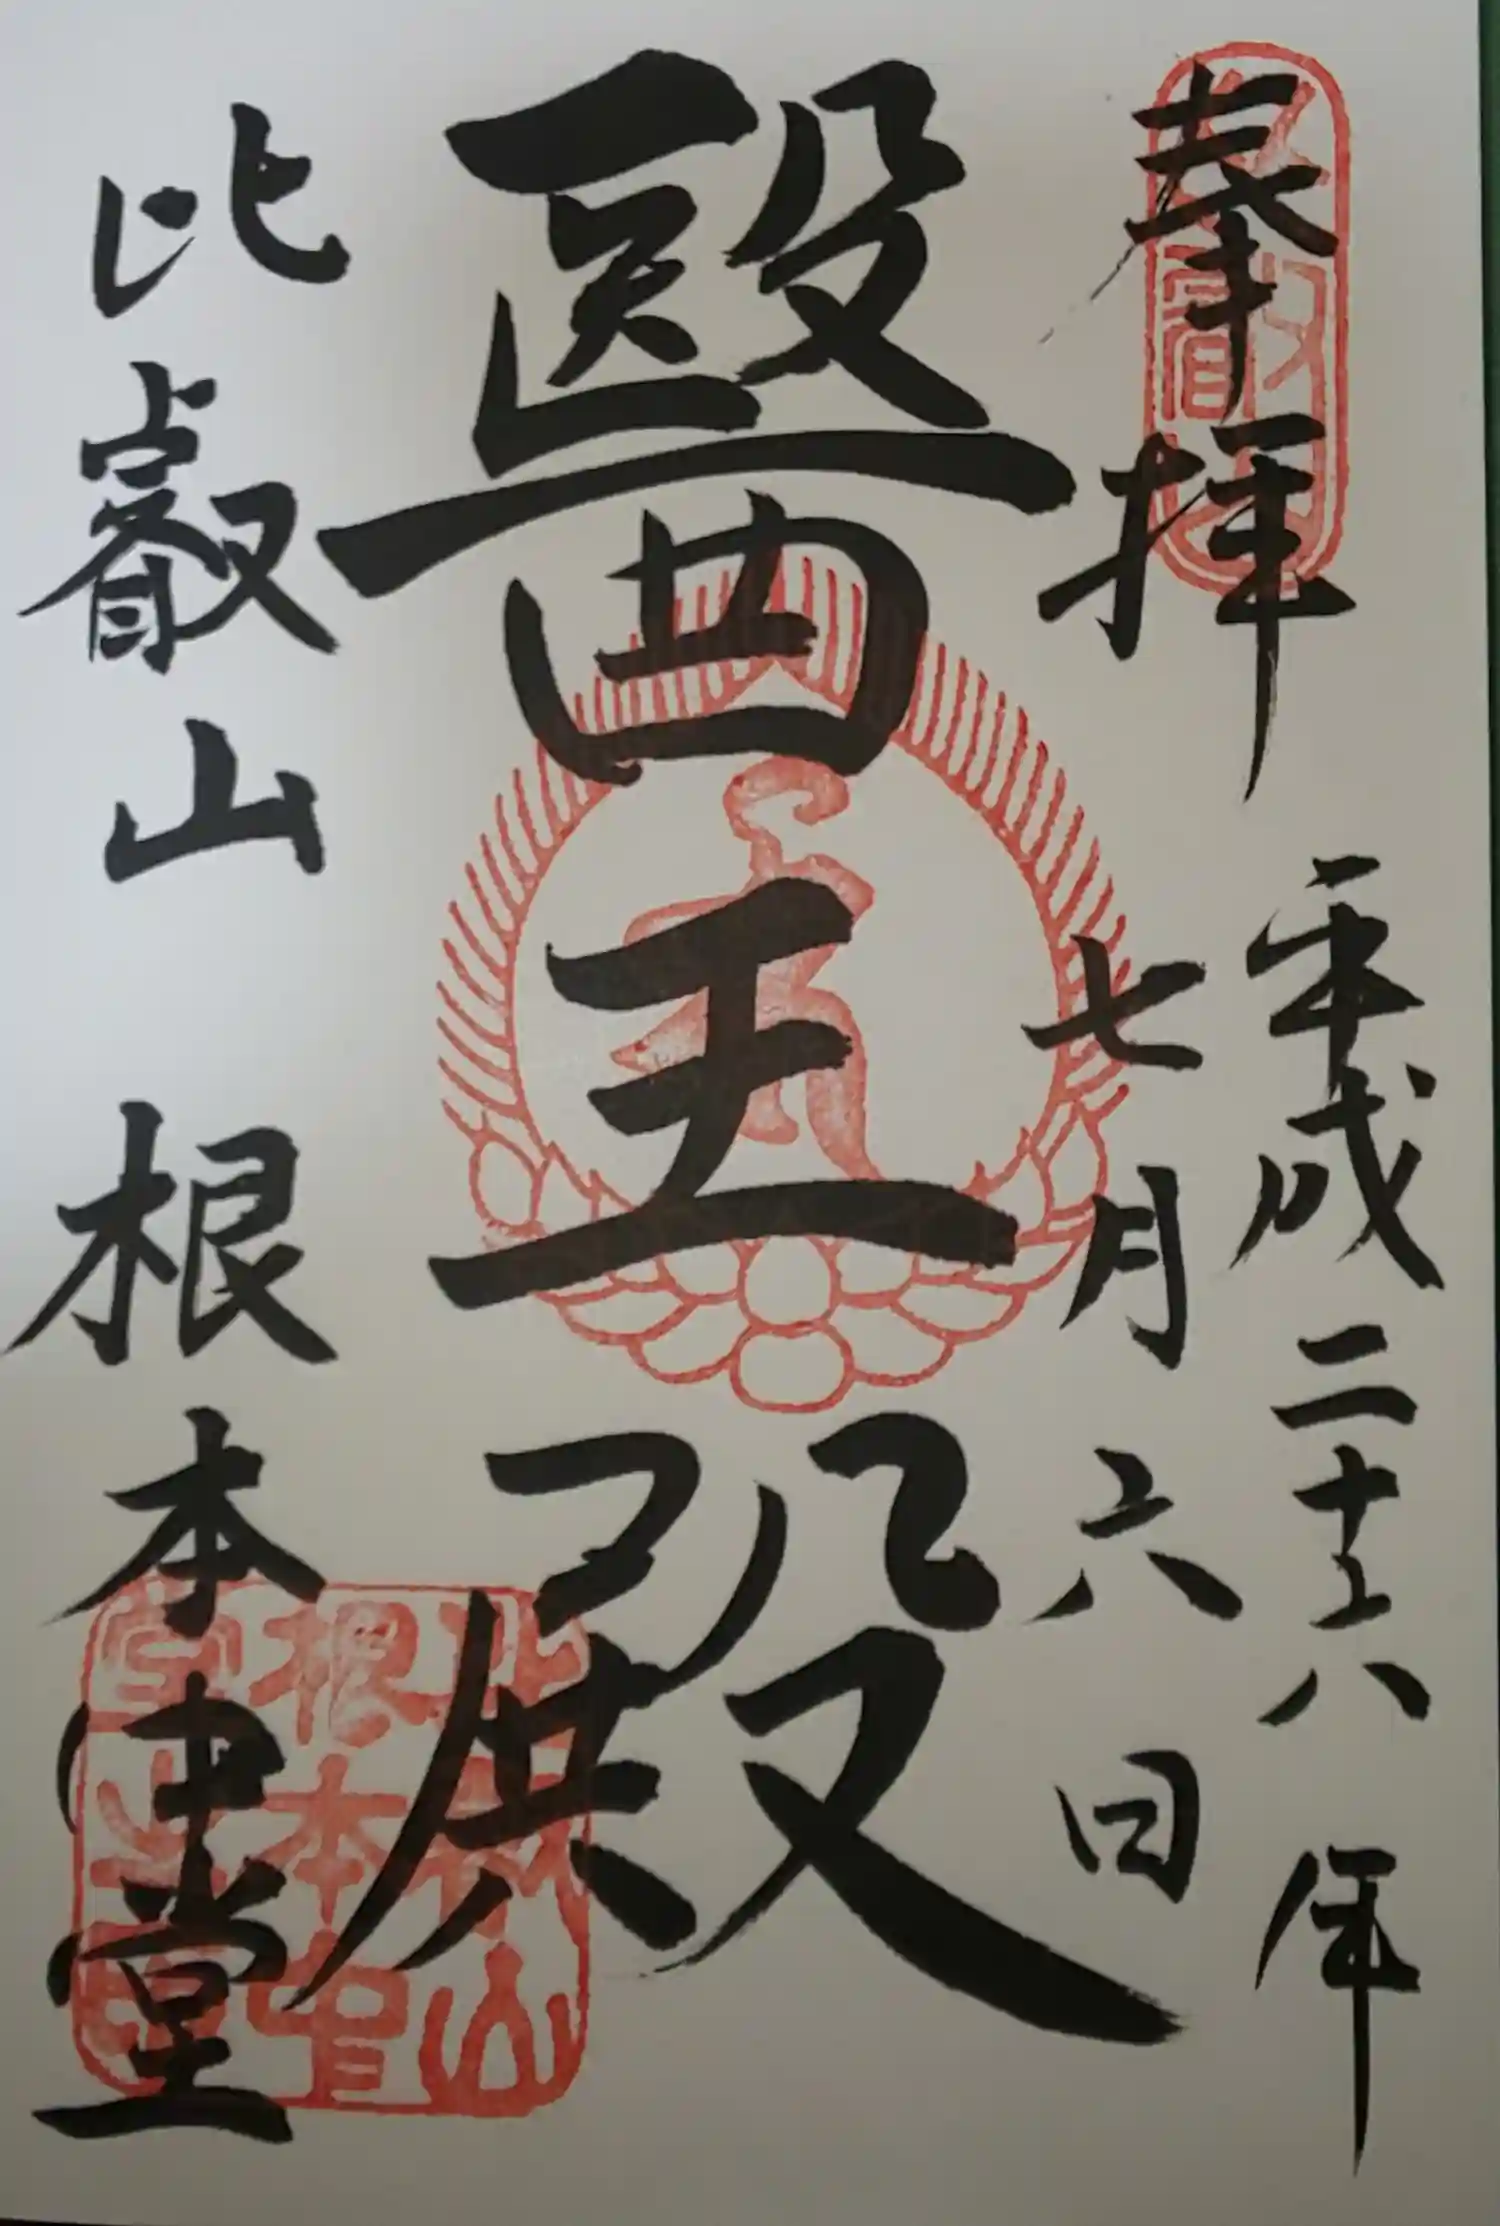 奉拝
平成二十六年
七月六日
醫王殿
比叡山 根本中堂
比叡山
根本中
堂之印